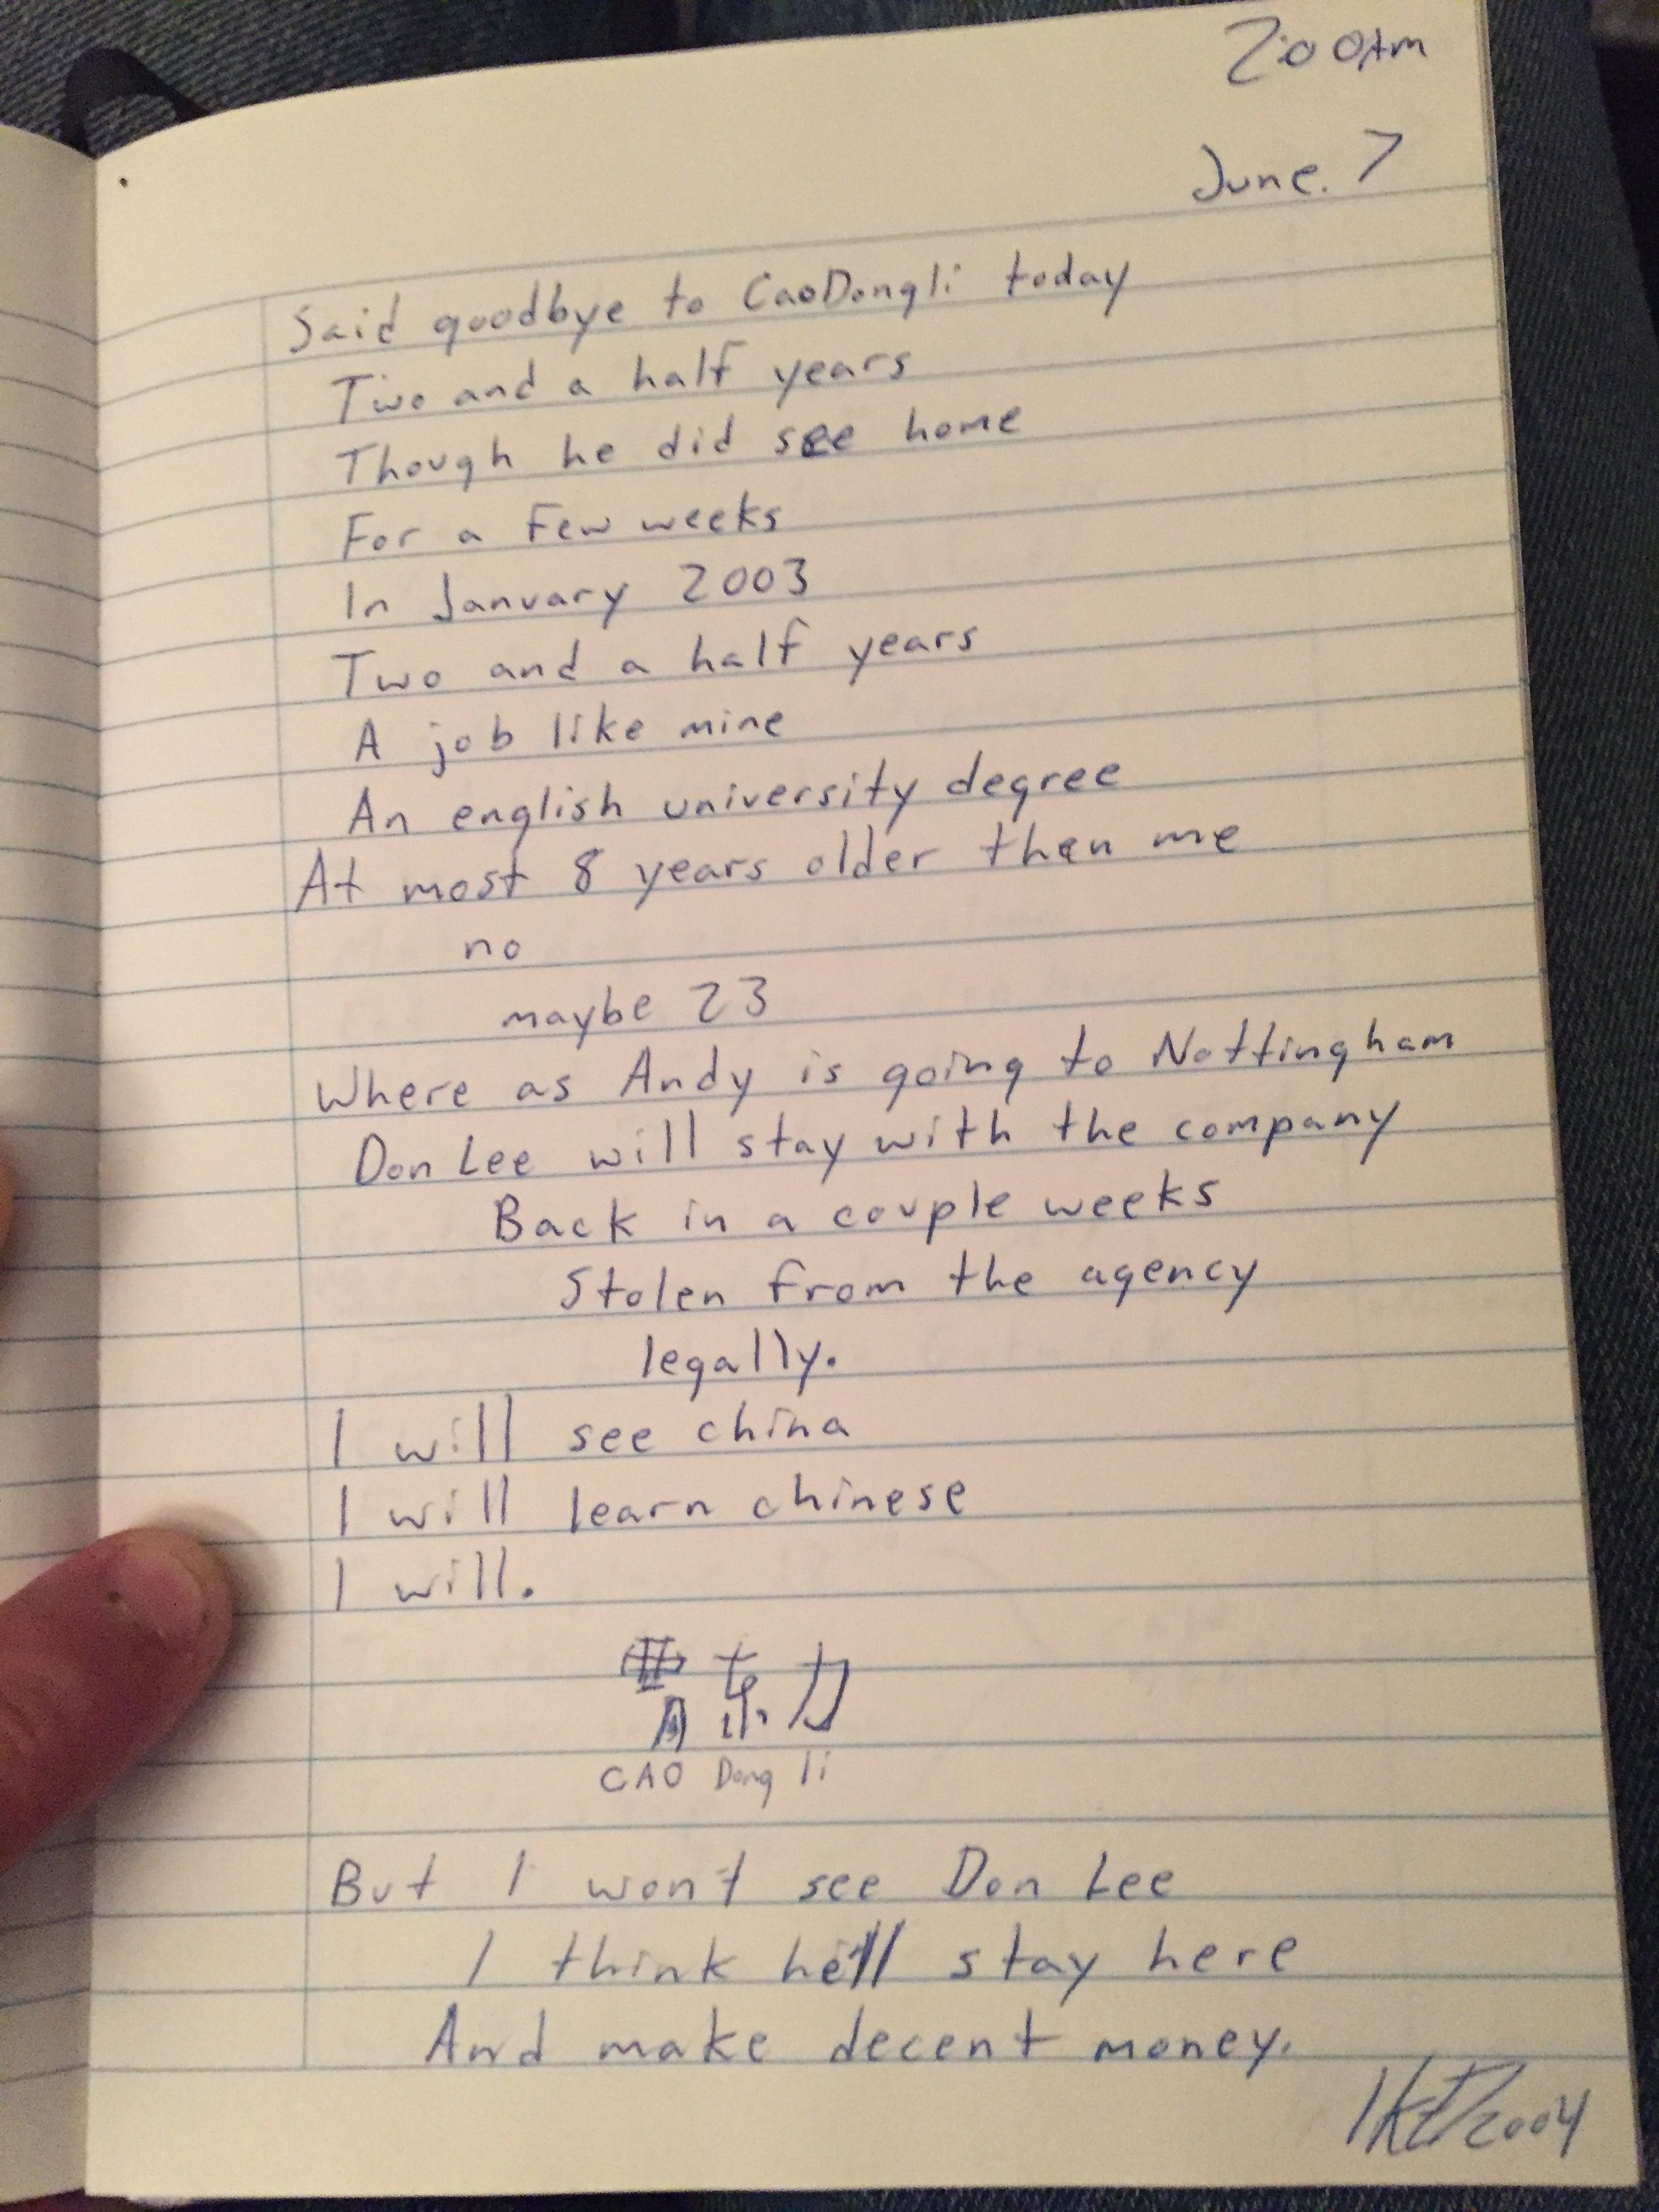 2:00AM
June. 7
Said goodbye to CaoDongli today
Two and a half years
Though he did see home
For a Few weeks
In January 2003
Two and a half years
A job like mine
An english university degree
At most 8 years older than me
no
maybe 23
Where as Andy is going to Nottingham
Don Lee will stay with the company
Back in a couple weeks
Stolen from the agency
legally.
I will see china
I will learn chinese
I will.
曹东力
CAO Dong li
But I won't see Don Lee
I think he'll stay here
And make decent money.
2004